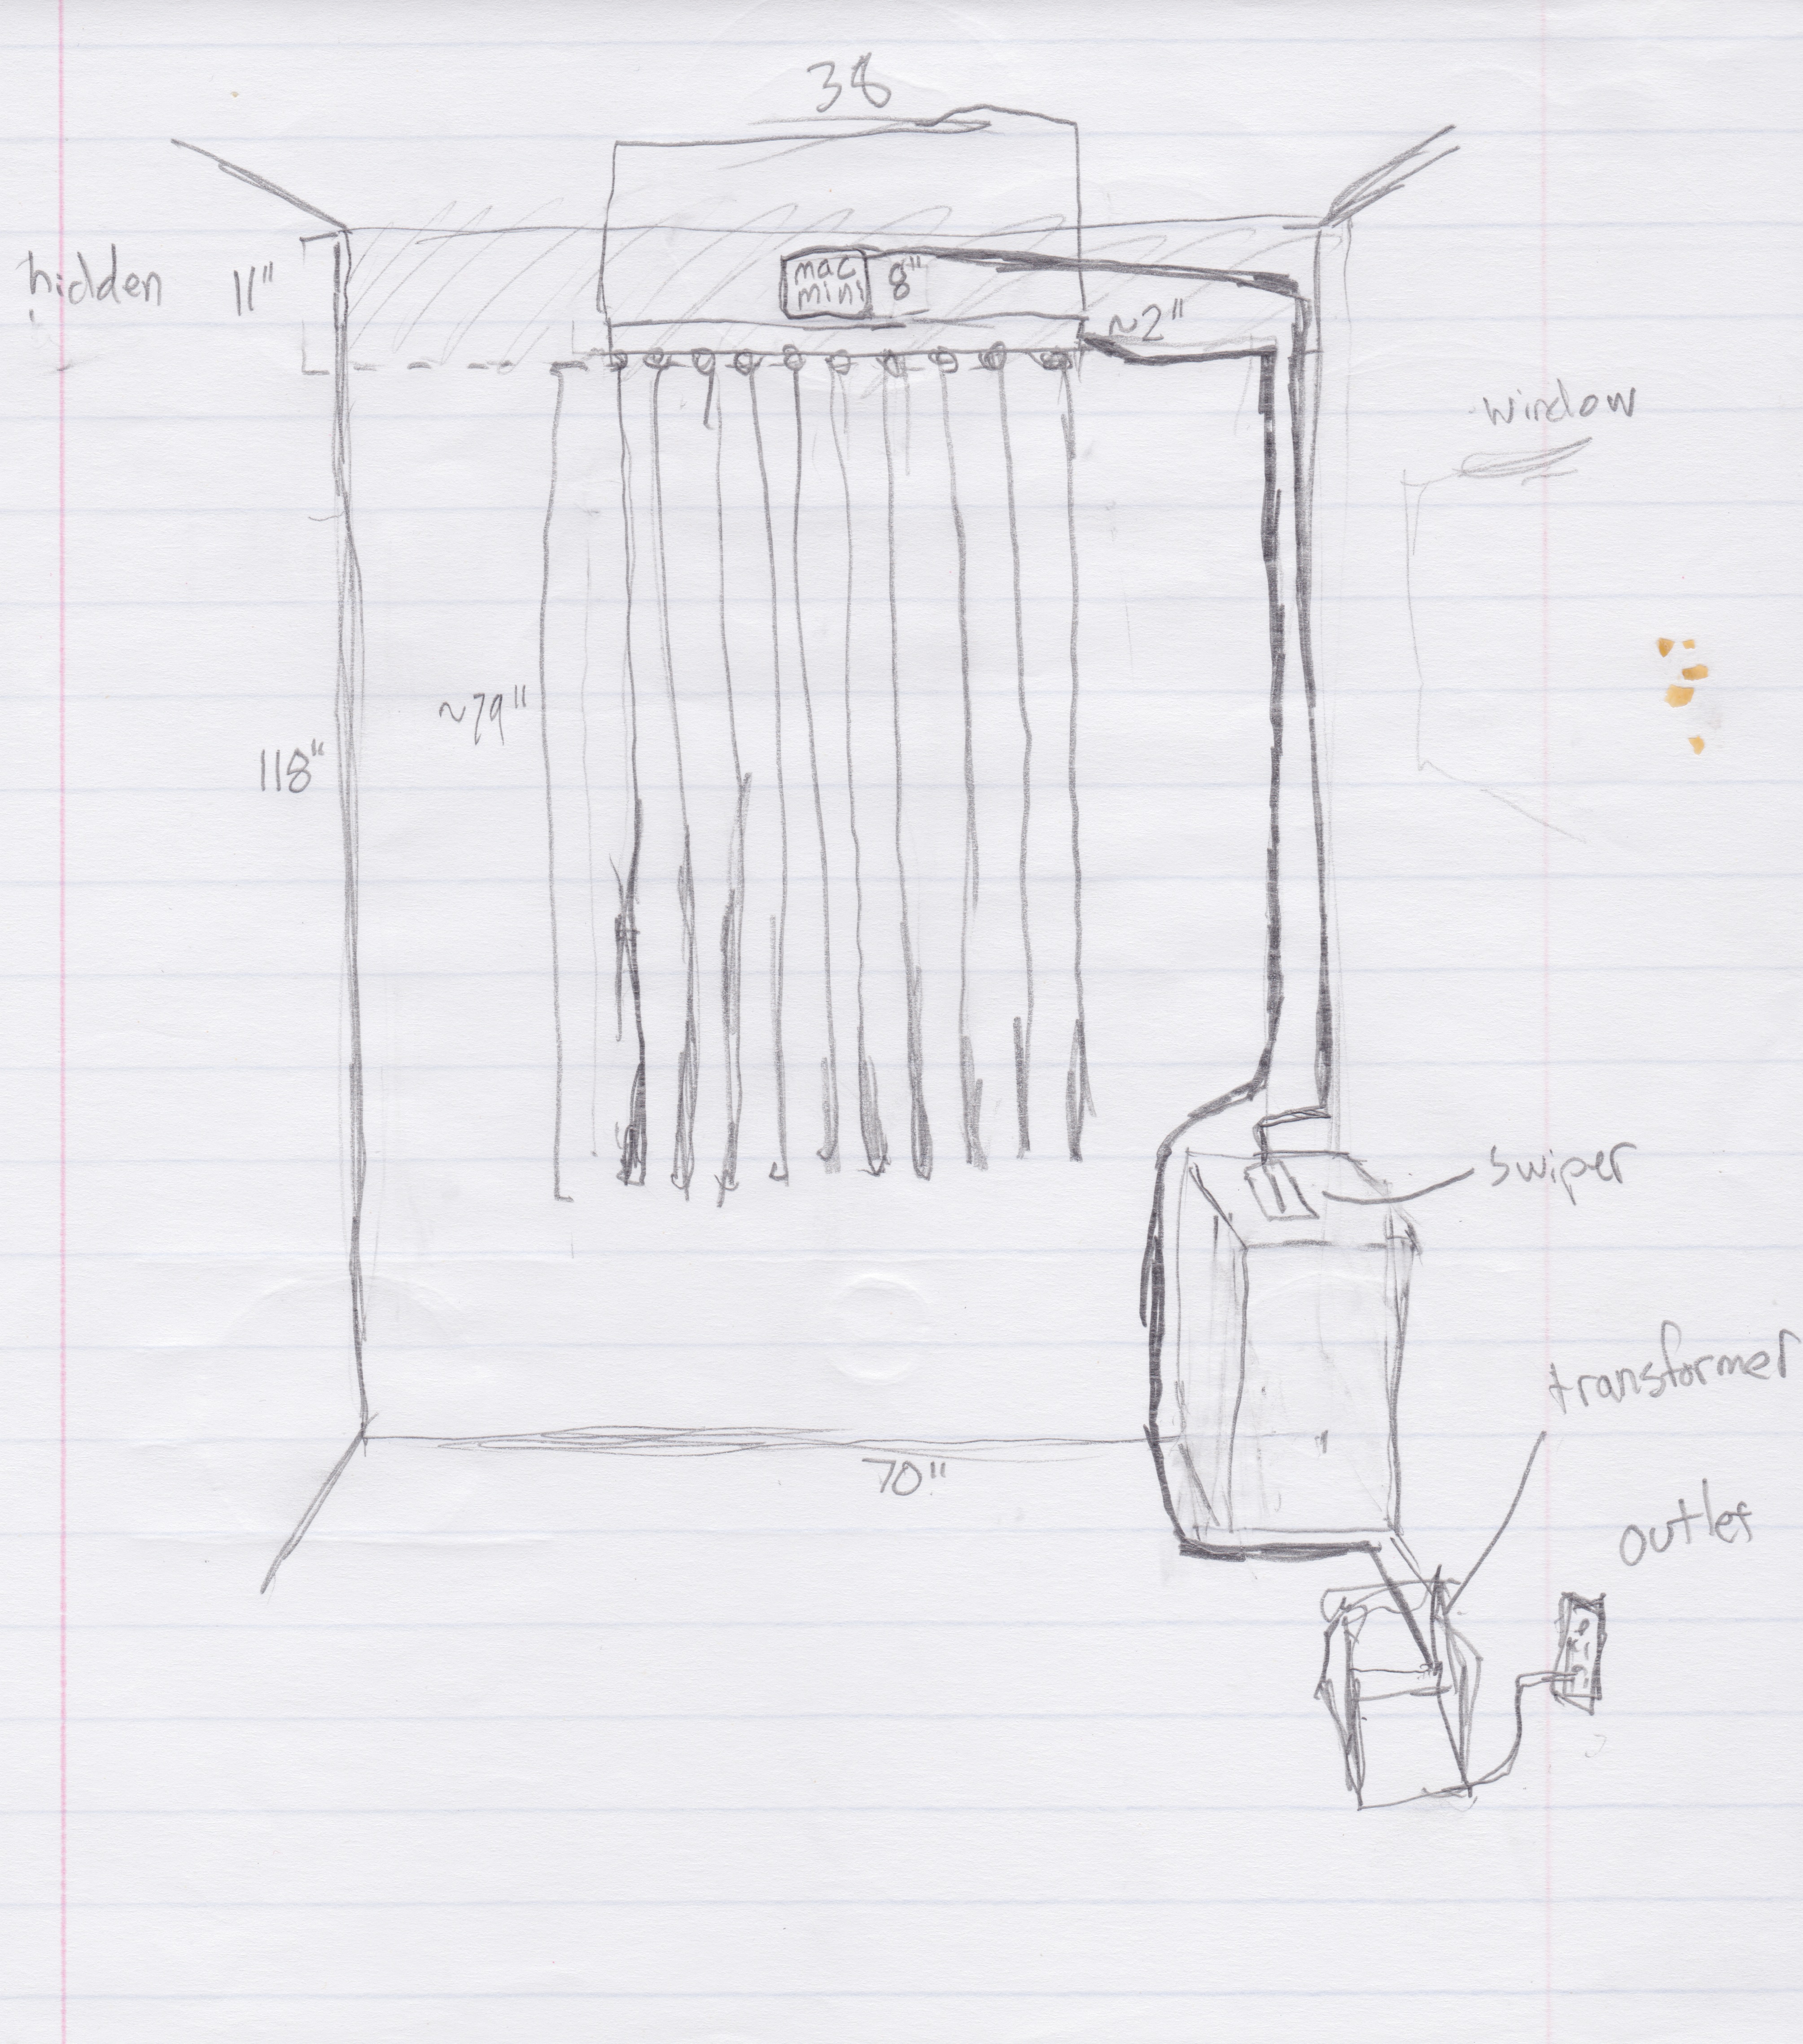 38
hidden
11"
mac
mini
8"
~2"
window
~79"
118"
swiper
transformer
70"
outlet